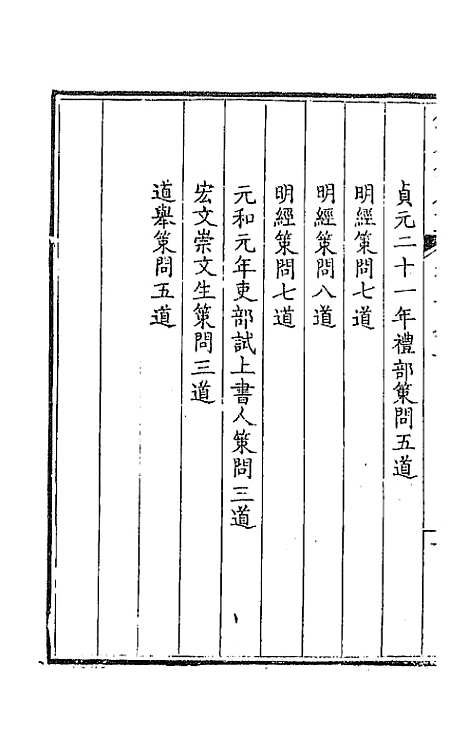 貞元二十一年禮部策問五道
明經策問七道
明經策問八道
明經策問七道
元和元年吏部試上書人策問三道
宏文崇文生策問三道
道舉策問五道